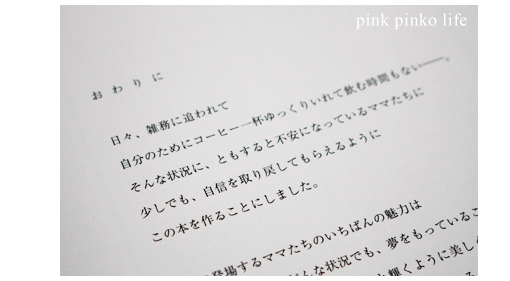 pink pinko life
おわりに
日々、雑務に追われて
自分のためにコーヒー一杯ゆっくりいれて飲む時間もない——。
そんな状況に、ともすると不安になっているママたちに
少しでも、自信を取り戻してもらえるように
この本を作ることにしました。
登場するママたちのいちばんの魅力は
んな状況でも、夢をもっているこ
輝くように美し